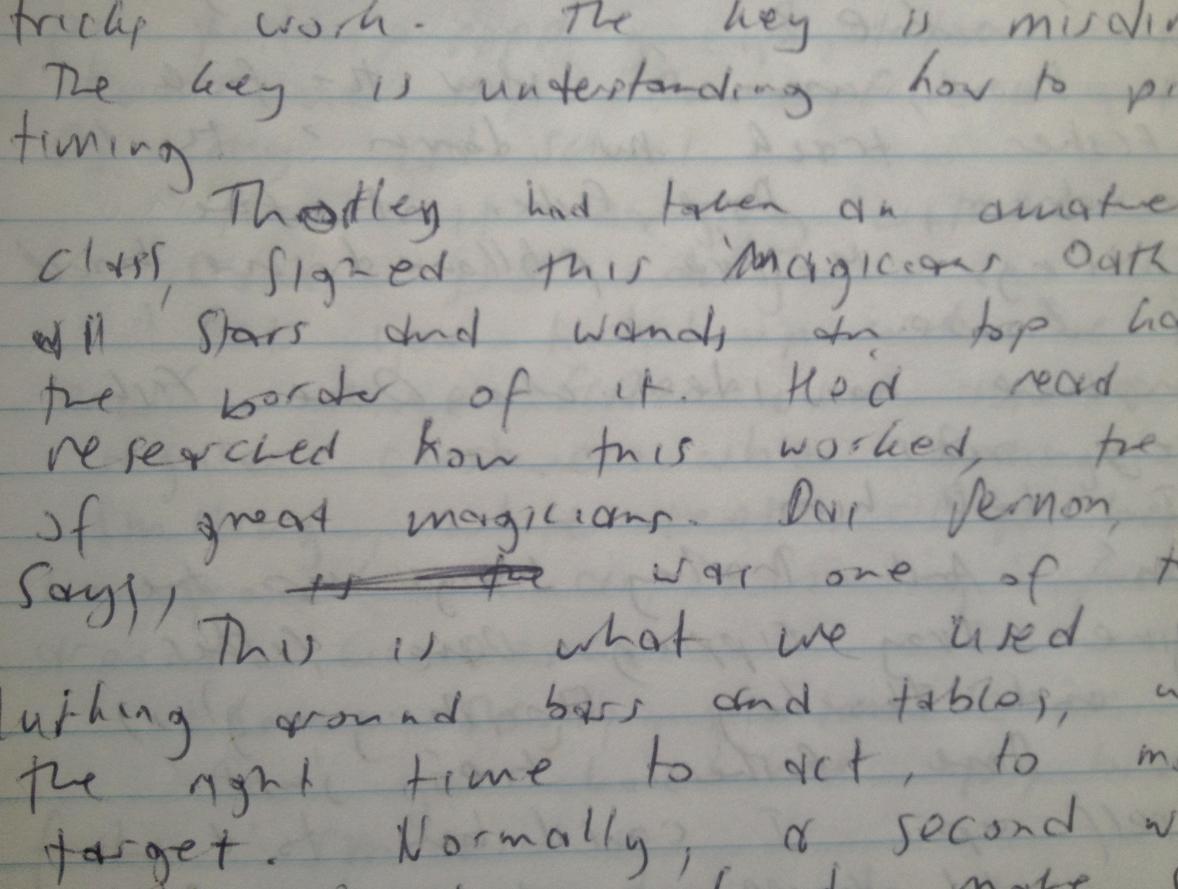 tricks work. The key is misdir
The key is understanding how to p
timing
Thotley had taken an amate
class, signed this magicians Oath
all stars and wands on top
the border of it. He'd read
researched how this worked, the
of great magicians. Dai Vernon,
says, was one of t
This is what we used
lurking around bars and tables,
the right time to act, to m
target. Normally, a second w
make